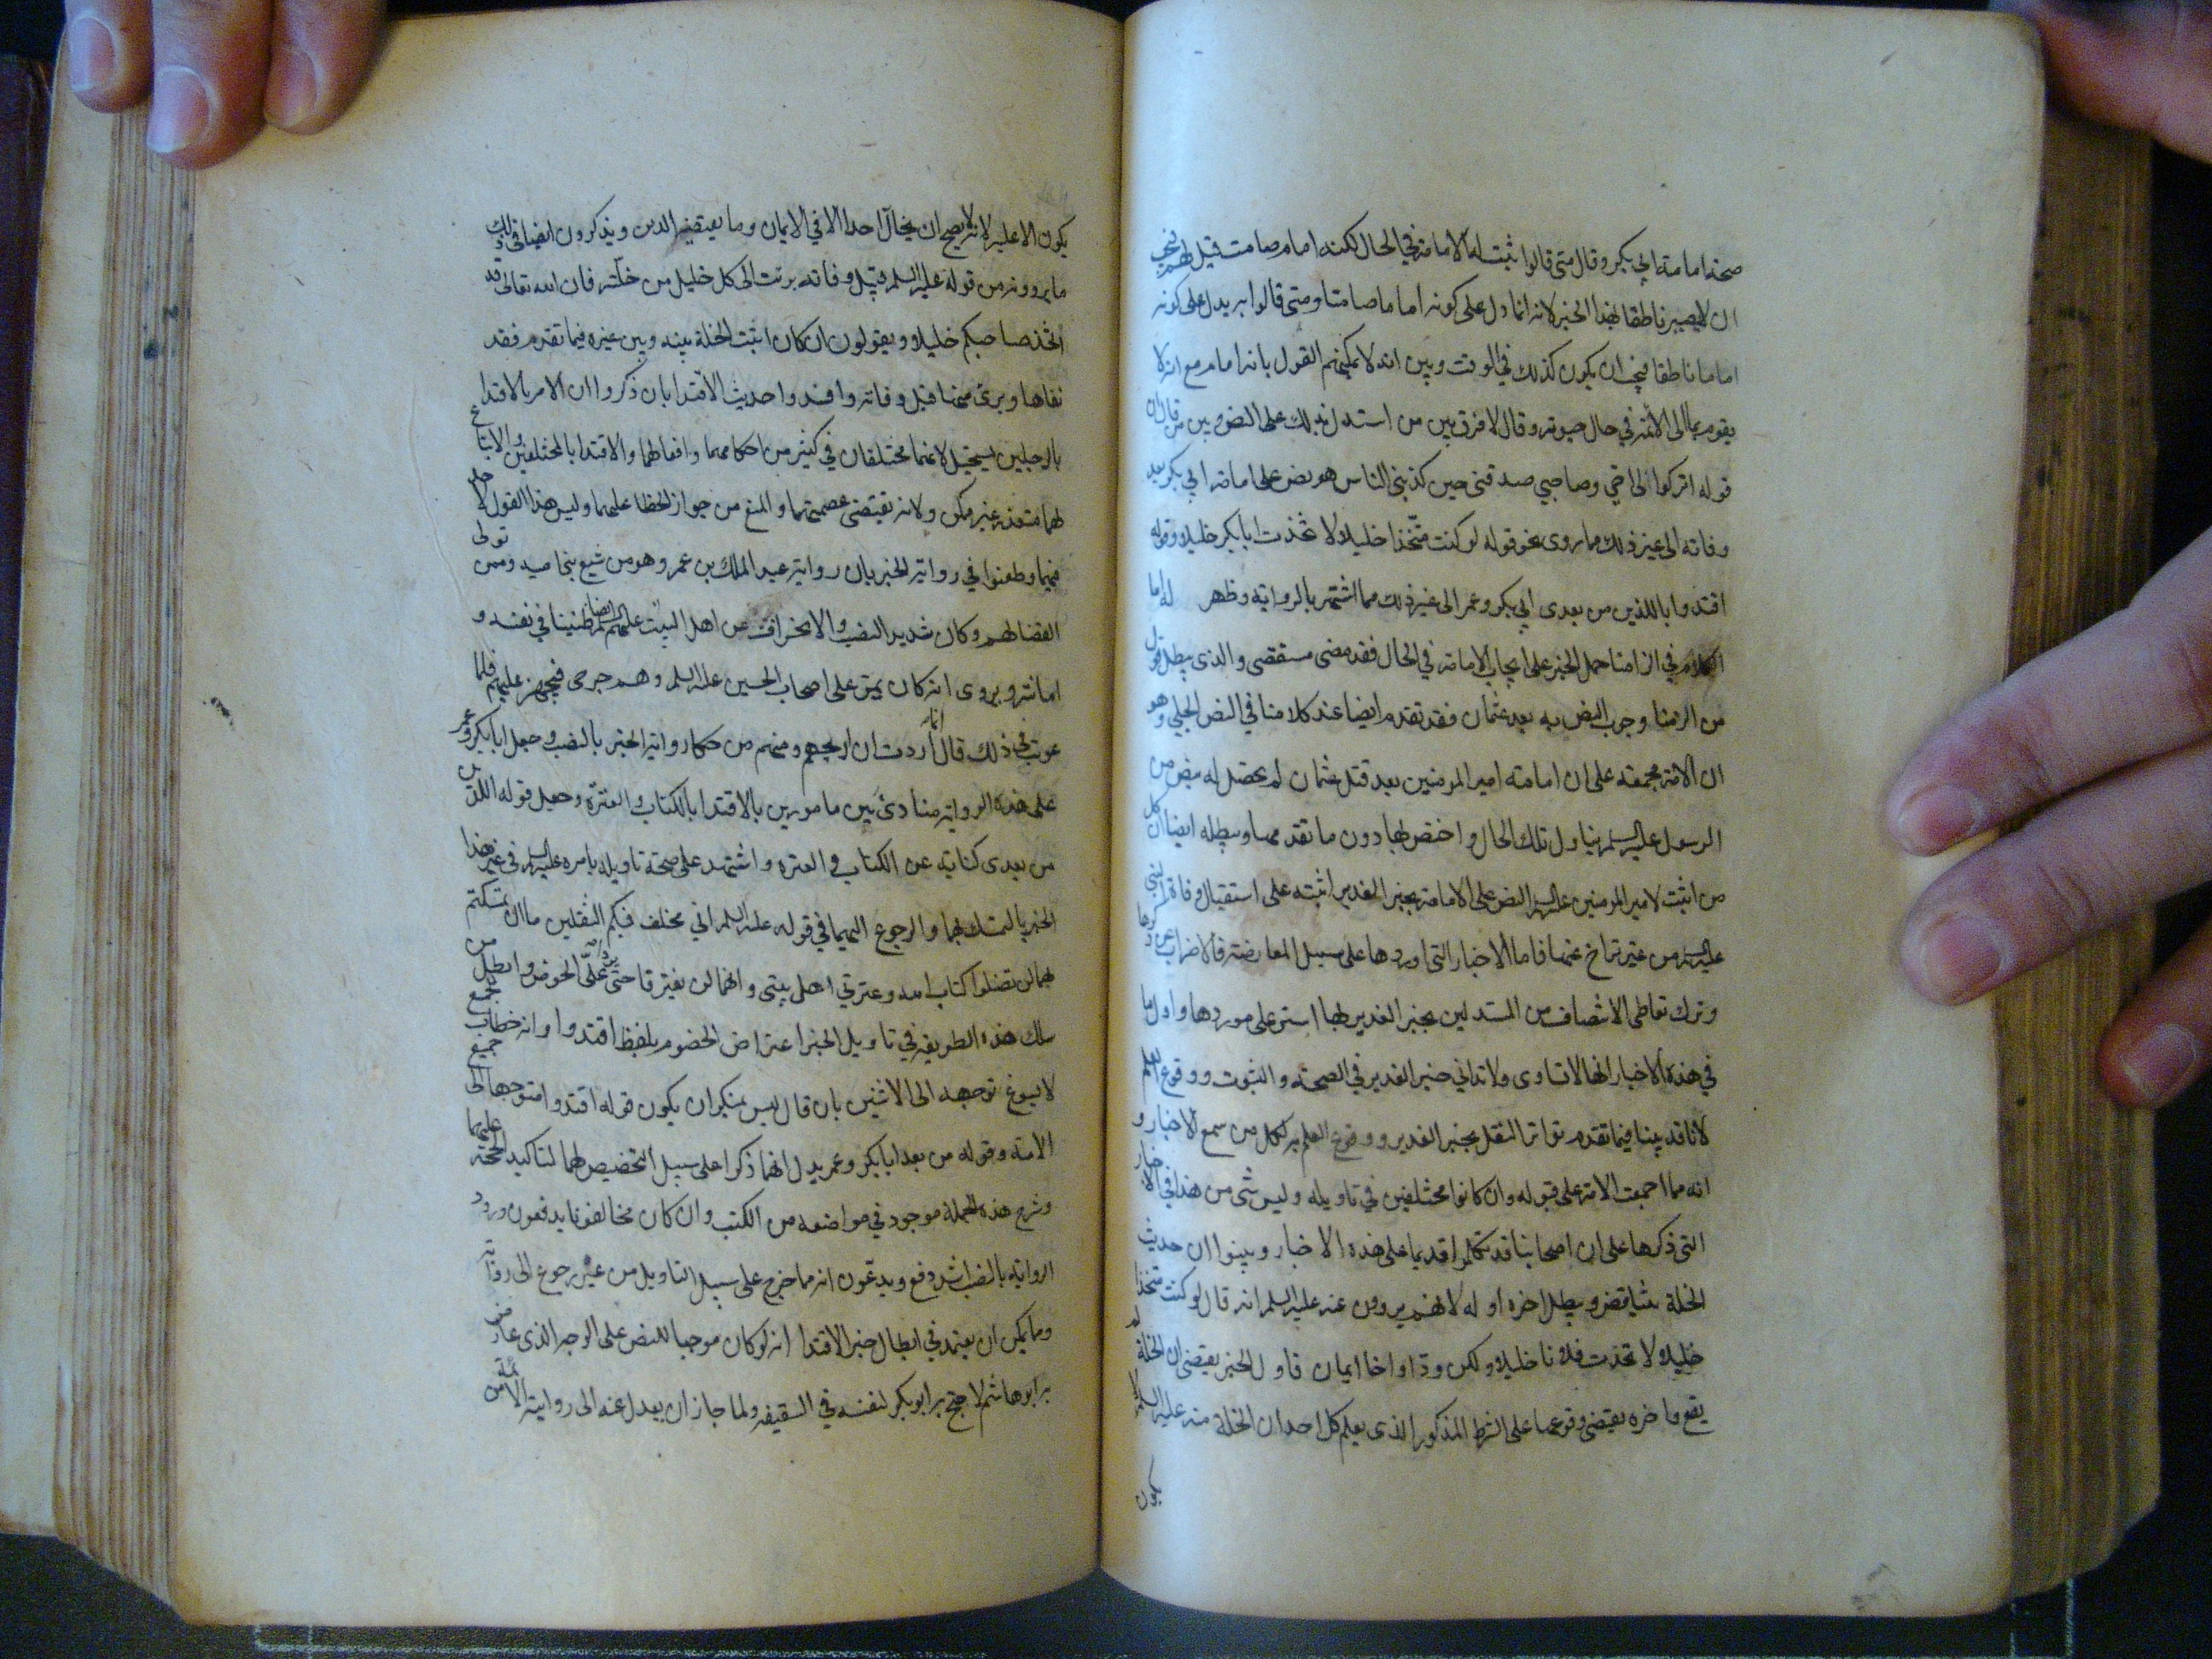 صحة امامته ابي بكر وقال متى قالوا ثبتت له الامامة في الحال لكنه امام صامت قيل لهم فيجب
ان لا يصير ناطقا بهذا الخبر لانه انما دل على كونه اماما صامتا ومتى قالوا به يدل على كونه
اماما ناطقا فيجب ان يكون كذلك في الوقت وبين انه لا يمكنهم القول بانه امام مع انه لا
يقوم بما الى الائمة في حال حيوته وقال لا فرق بين من استدل بذلك على النص وبين من قال ان
قوله اتركوا لي اخي وصاحبي صدقني حين كذبني الناس هو نص على امامة ابي بكر بعد
وفاته الى غير ذلك مما روى نحو قوله لو كنت متخذا خليلا لاتخذت ابا بكر خليلا وقوله
اقتدوا باللذين من بعدى ابي بكر وعمر الى غير ذلك مما اشتهر بالرواية وظهر له اما
الكلام في الزامنا حمل الخبر على ايجاب الامامة في الحال فقد مضى مستقصى والذى يبطل قول
من الزمنا وجوب النص به بعد عثمان فقد تقدم ايضا عند كلامنا في النص الجلي وهو
ان الامة مجمعة على ان امامته امير المومنين بعد قتل عثمان لم يحصل له بنص من
الرسول عليه السلم يتناول تلك الحال واختص بها دون ما تقدمها ويبطله ايضا ان كل
من اثبت لامير المومنين عليه السلم النص على الامامة بخبر الغدير اثبته على استقبال وفاة النبي
عليه السلم من غير تراخ عنها فاما الاخبار التى اوردها على سبيل المعارضة فالاضراب عن ذكرها
وترك تعاطى الانتصاف من المستدلين بخبر الغدير بها استر على موردها واول ما
في هذه الاخبار انها لا تساوى ولا تداني خبر الغدير في الصحة والثبوت ووقوع العلم
لانا قد بينا فيما تقدم تواتر النقل بخبر الغدير ووقوع العلم به لكل من سمع الاخبار و
انه مما اجمعت الامة على قبوله وان كانوا مختلفين في تاويله وليس شى من هذا في الاخبار
التى ذكرها على ان اصحابنا قد تكلموا قديما على هذه الاخبار وبينوا ان حديث
الخلة يتناقض ويبطل اخره اوله لانهم يروون عنه عليه السلم انه قال لو كنت متخذا
خليلا لاتخذت فلانا خليلا ولكن ود واخا ايمان فاول الخبر يقتضي ان الخلة لم
يقع واخره يقتضى وقوعها على الشرط المذكور الذى يعلم كل احد ان الخلة منه عليه السلم لا
يكون
يكون الا عليه لانه لا يصح ان يخال احدا الا في الايمان وما يقتضيه الدين ويذكرون ايضا في ذلك
ما يروونه من قوله عليه السلم قبل وفاته برئت الى كل خليل من خلته فان الله تعالى قد
اتخذ صاحبكم خليلا ويقولون ان كان اثبت الخلة بينه وبين غيره فيما تقدم فقد
نفاها وبرئ منها قبل وفاته وافسدوا حديث الاقتدا بان ذكروا ان الامر بالاقتدا
بالرجلين يستحيل لانهما مختلفان في كثير من احكامهما وافعالهما والاقتدا بالمختلفين والاتباع
لهما متعذر غير ممكن ولانه يقتضى عصمتهما والمنع من جواز الخطا عليهما وليس هذا القول لاحد
فيهما وطعنوا في رواية الخبر بان رواية عبد الملك بن عمر وهو من شيع بني اميه وممن تولى
القضا لهم وكان شديد النصب والانحراف عن اهل البيت عليهم السلم ايضا ظنينا في نفسه و
امانته ويروى انه كان يمر على اصحاب الحسين عليه السلم وهم جرحى فيجهز عليهم فلما
عوتب في ذلك قال انما اردت ان اريحهم ومنهم من حكا رواية الخبر بالنصب وجعل ابا بكر وعمر
على هذه الرواية مناديين مامورين بالاقتدا بالكتاب والعترة وجعل قوله اللذين
من بعدى كناية عن الكتاب والعتره واستشهد على صحة تاويله بامره عليه السلم في غير هذا
الخبر بالتمسك بهما والرجوع اليهما في قوله عليه السلم اني مخلف فيكم الثقلين ما ان تمسكتم
بهما لن تضلوا كتاب الله وعترتي اهل بيتى وانهما لن يفترقا حتى يردا على الحوض وابطل من
سلك هذه الطريقة في تاويل الخبر اعتراض الخصوم بلفظ اقتدوا وانه خطاب للجمع
لا يسوغ توجهه الى الاثنين بان قال ليس بمنكر ان يكون قوله اقتدوا متوجها الى جميع
الامة وقوله من بعد ابا بكر وعمر يدل انهما ذكرا على سبيل التخصيص لهما لتاكيد الحجة عليهما
وشرح هذه الجملة موجود في مواضعه من الكتب وان كان مخالفونا يدفعون ورود
الرواية بالنصب اشد دفع ويدعون انه مما خرج على سبيل التاويل من غير رجوع الى رواية
ومما يمكن ان يعتمد في ابطال خبر الاقتدا انه لو كان موجبا للنص على الوجه الذى عارض
به ابو هاشم لاحتج به ابو بكر لنفسه في السقيفة ولما جاز ان يعدل عنه الى رواية الائمة من